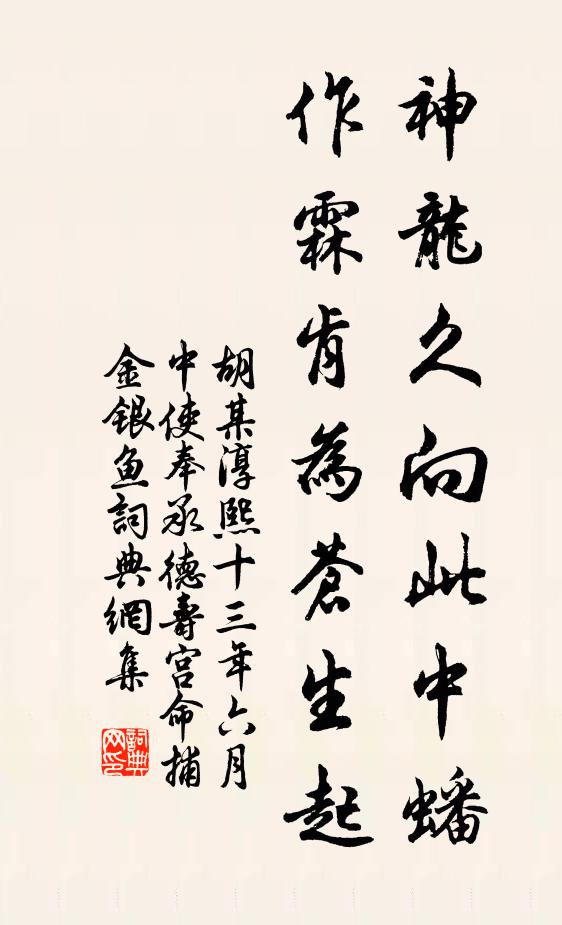 神龍久向此中蟠
作霖肯為蒼生起
胡某淳熙十三年六月
中使奉承德壽宮命捕
金銀鱼詞典網集
詞典
网印